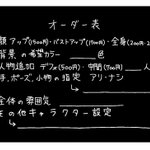 オーダー表
顔アップ(500円)・バストアップ(1500円)・全身(2000円
背景の希望カラー 色
人物追加 デフォ(500円)・守門(700円) 人
手、ポーズ、小物の指定 アリ・ナシ
全体の雰囲気
その他キャラクター設定